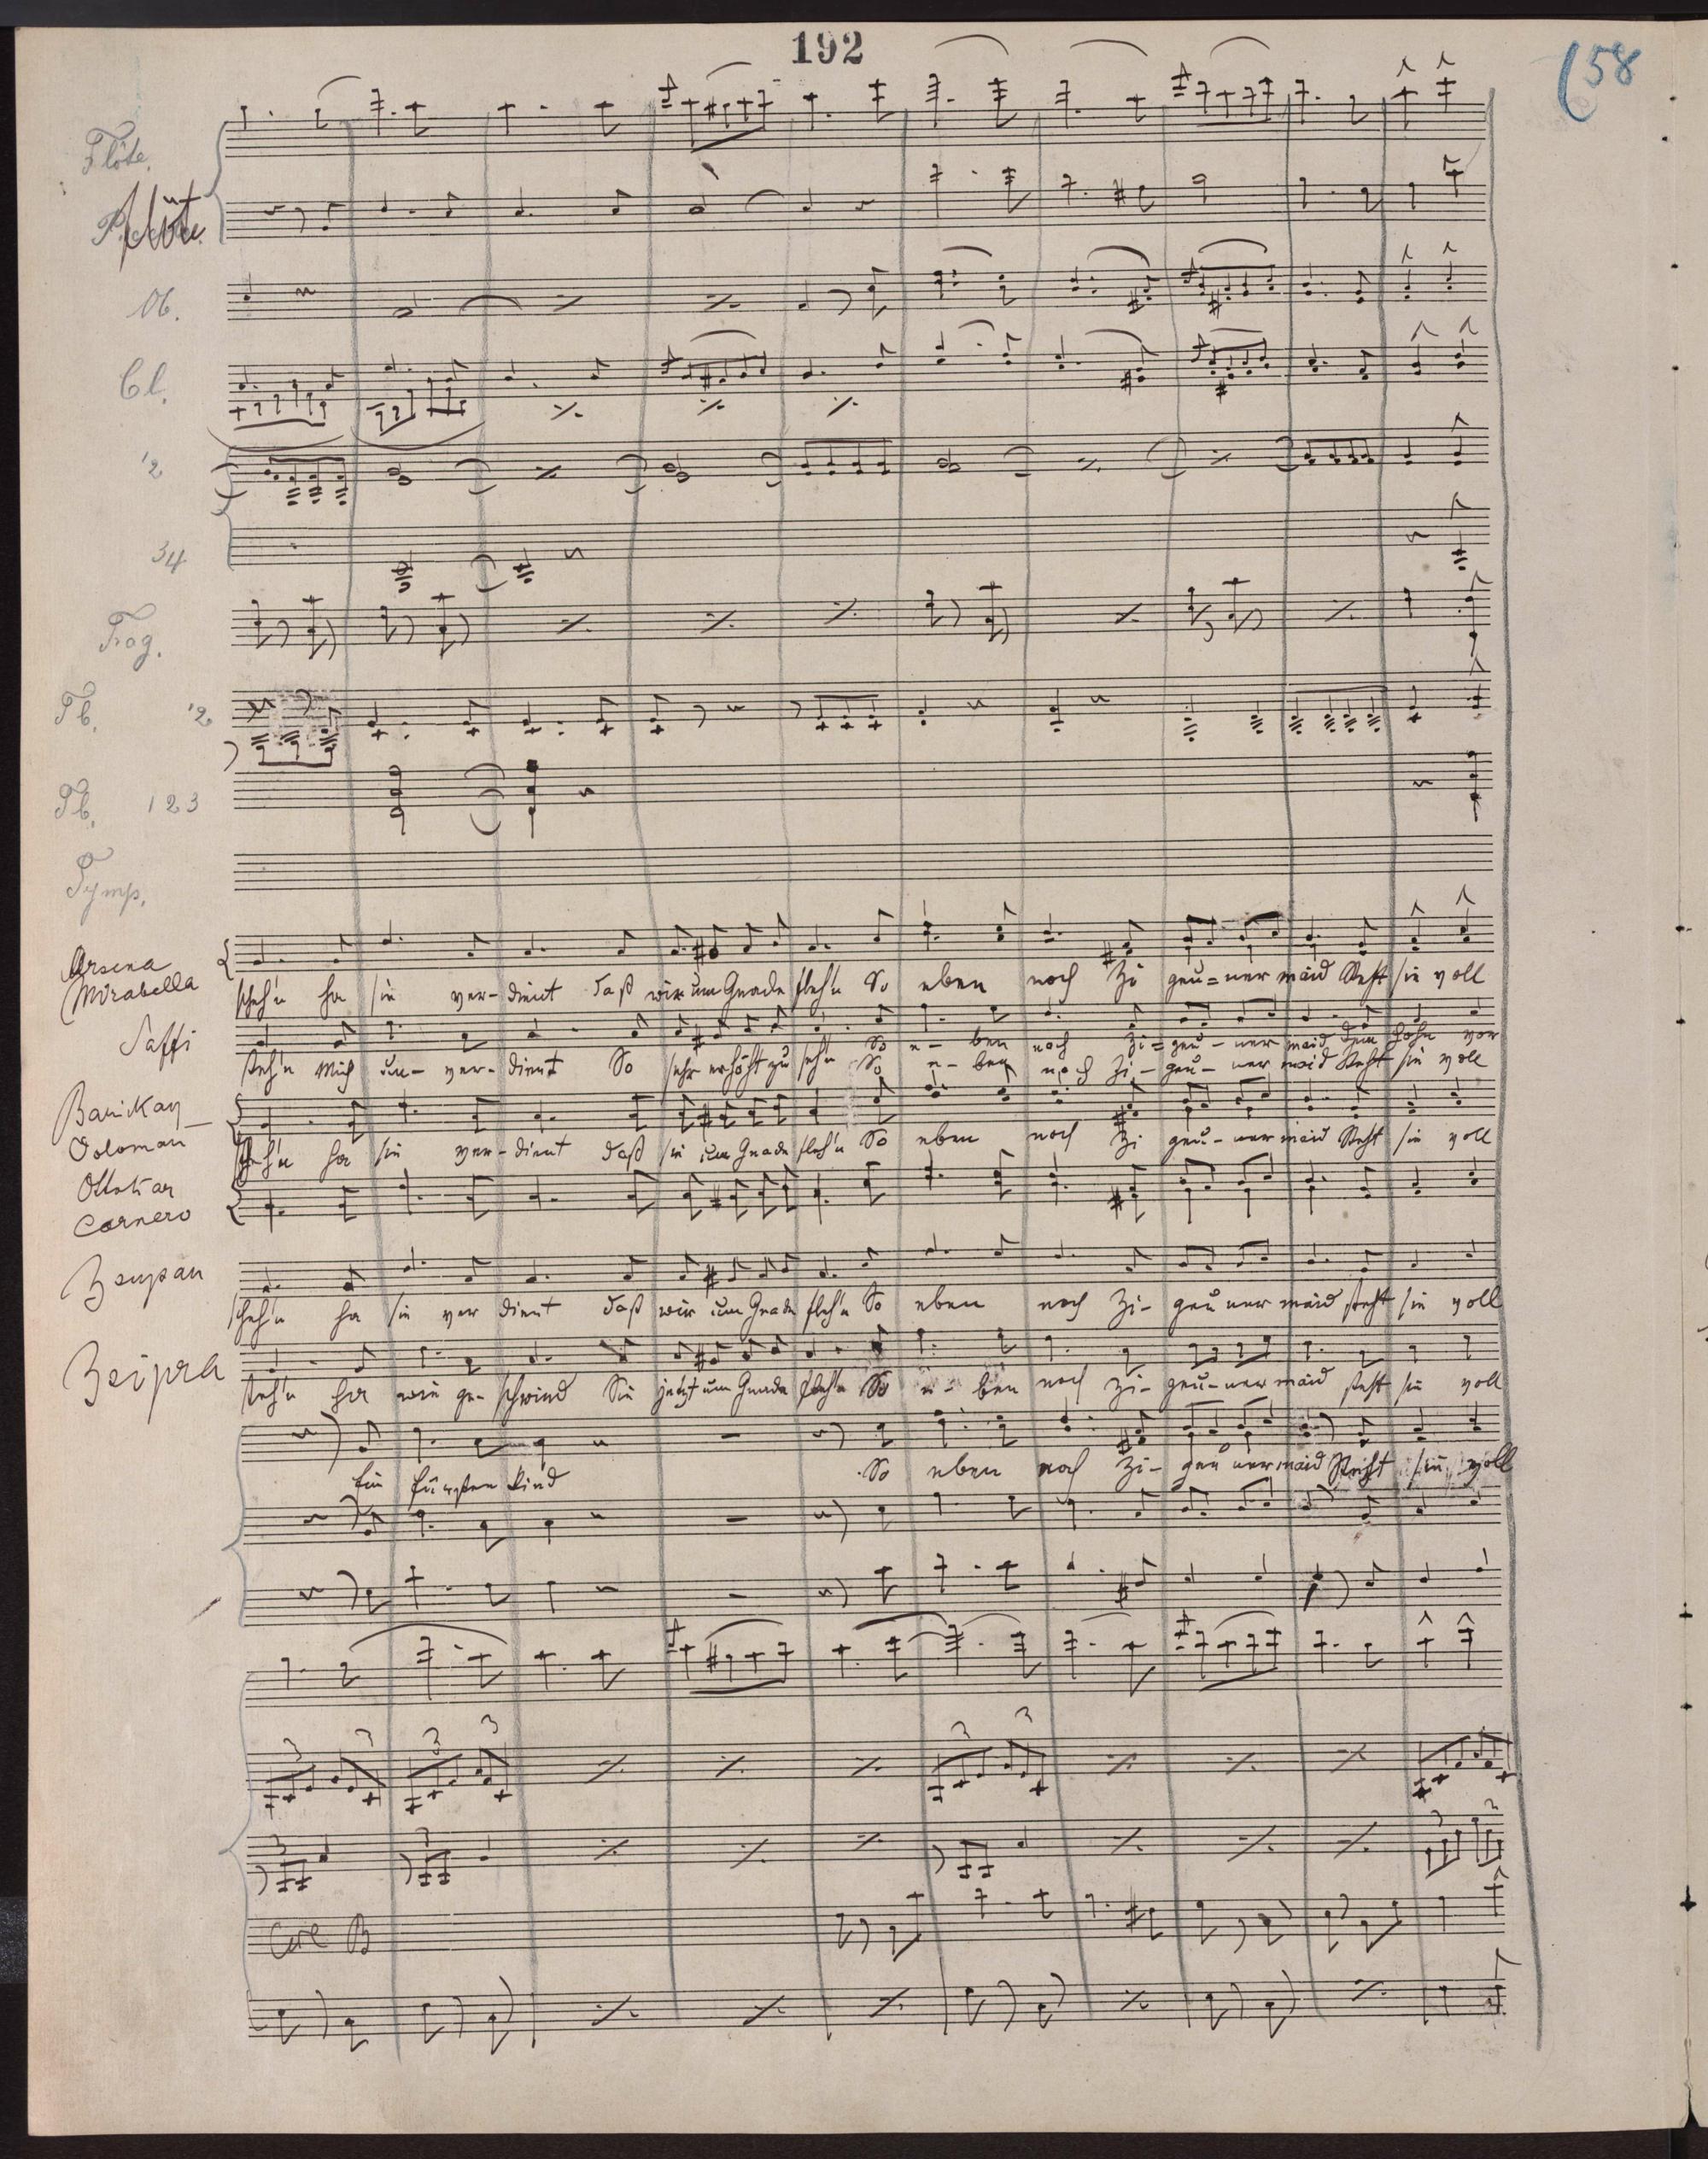 192
58
Flöte.
Flöte
Ob.
Cl.
12
34
Fag.
Tb. 12
Pb. 123
Tymp.
Arsena
Mirabella
scheh'n ha sie ver-dient daß wir um Gnade fleh'n So eben noch Zi geu=ner maid Steht sie voll
Saffi
So e-ben noch Zi=geu-ner maid dem Hohn vor
steh'n Mich un-ver-dient So sehr erhöht zu seh'n So e-ben noch Zi-geu-ner maid Steht sie voll
Barinkay
Ottokar
Carnero
ha sie ver-dient daß sie um Gnade fleh'n So eben noch Zi geu-ner maid Steht sie voll
Zsupan
scheh'n ha sie ver dient daß wir um Gnade fleh'n So eben noch Zi-geu ner maid steht sie voll
Zzipra
steh'n ha wie ge-schwind Sie jetzt um Gnade fleh'n So e-ben noch Zi-geu-ner maid steht sie voll
Ein Fürsten kind So eben noch Zi-geu ner maid Steht sie voll
3 3 3 3 3 3
3 3 3 3
Col B